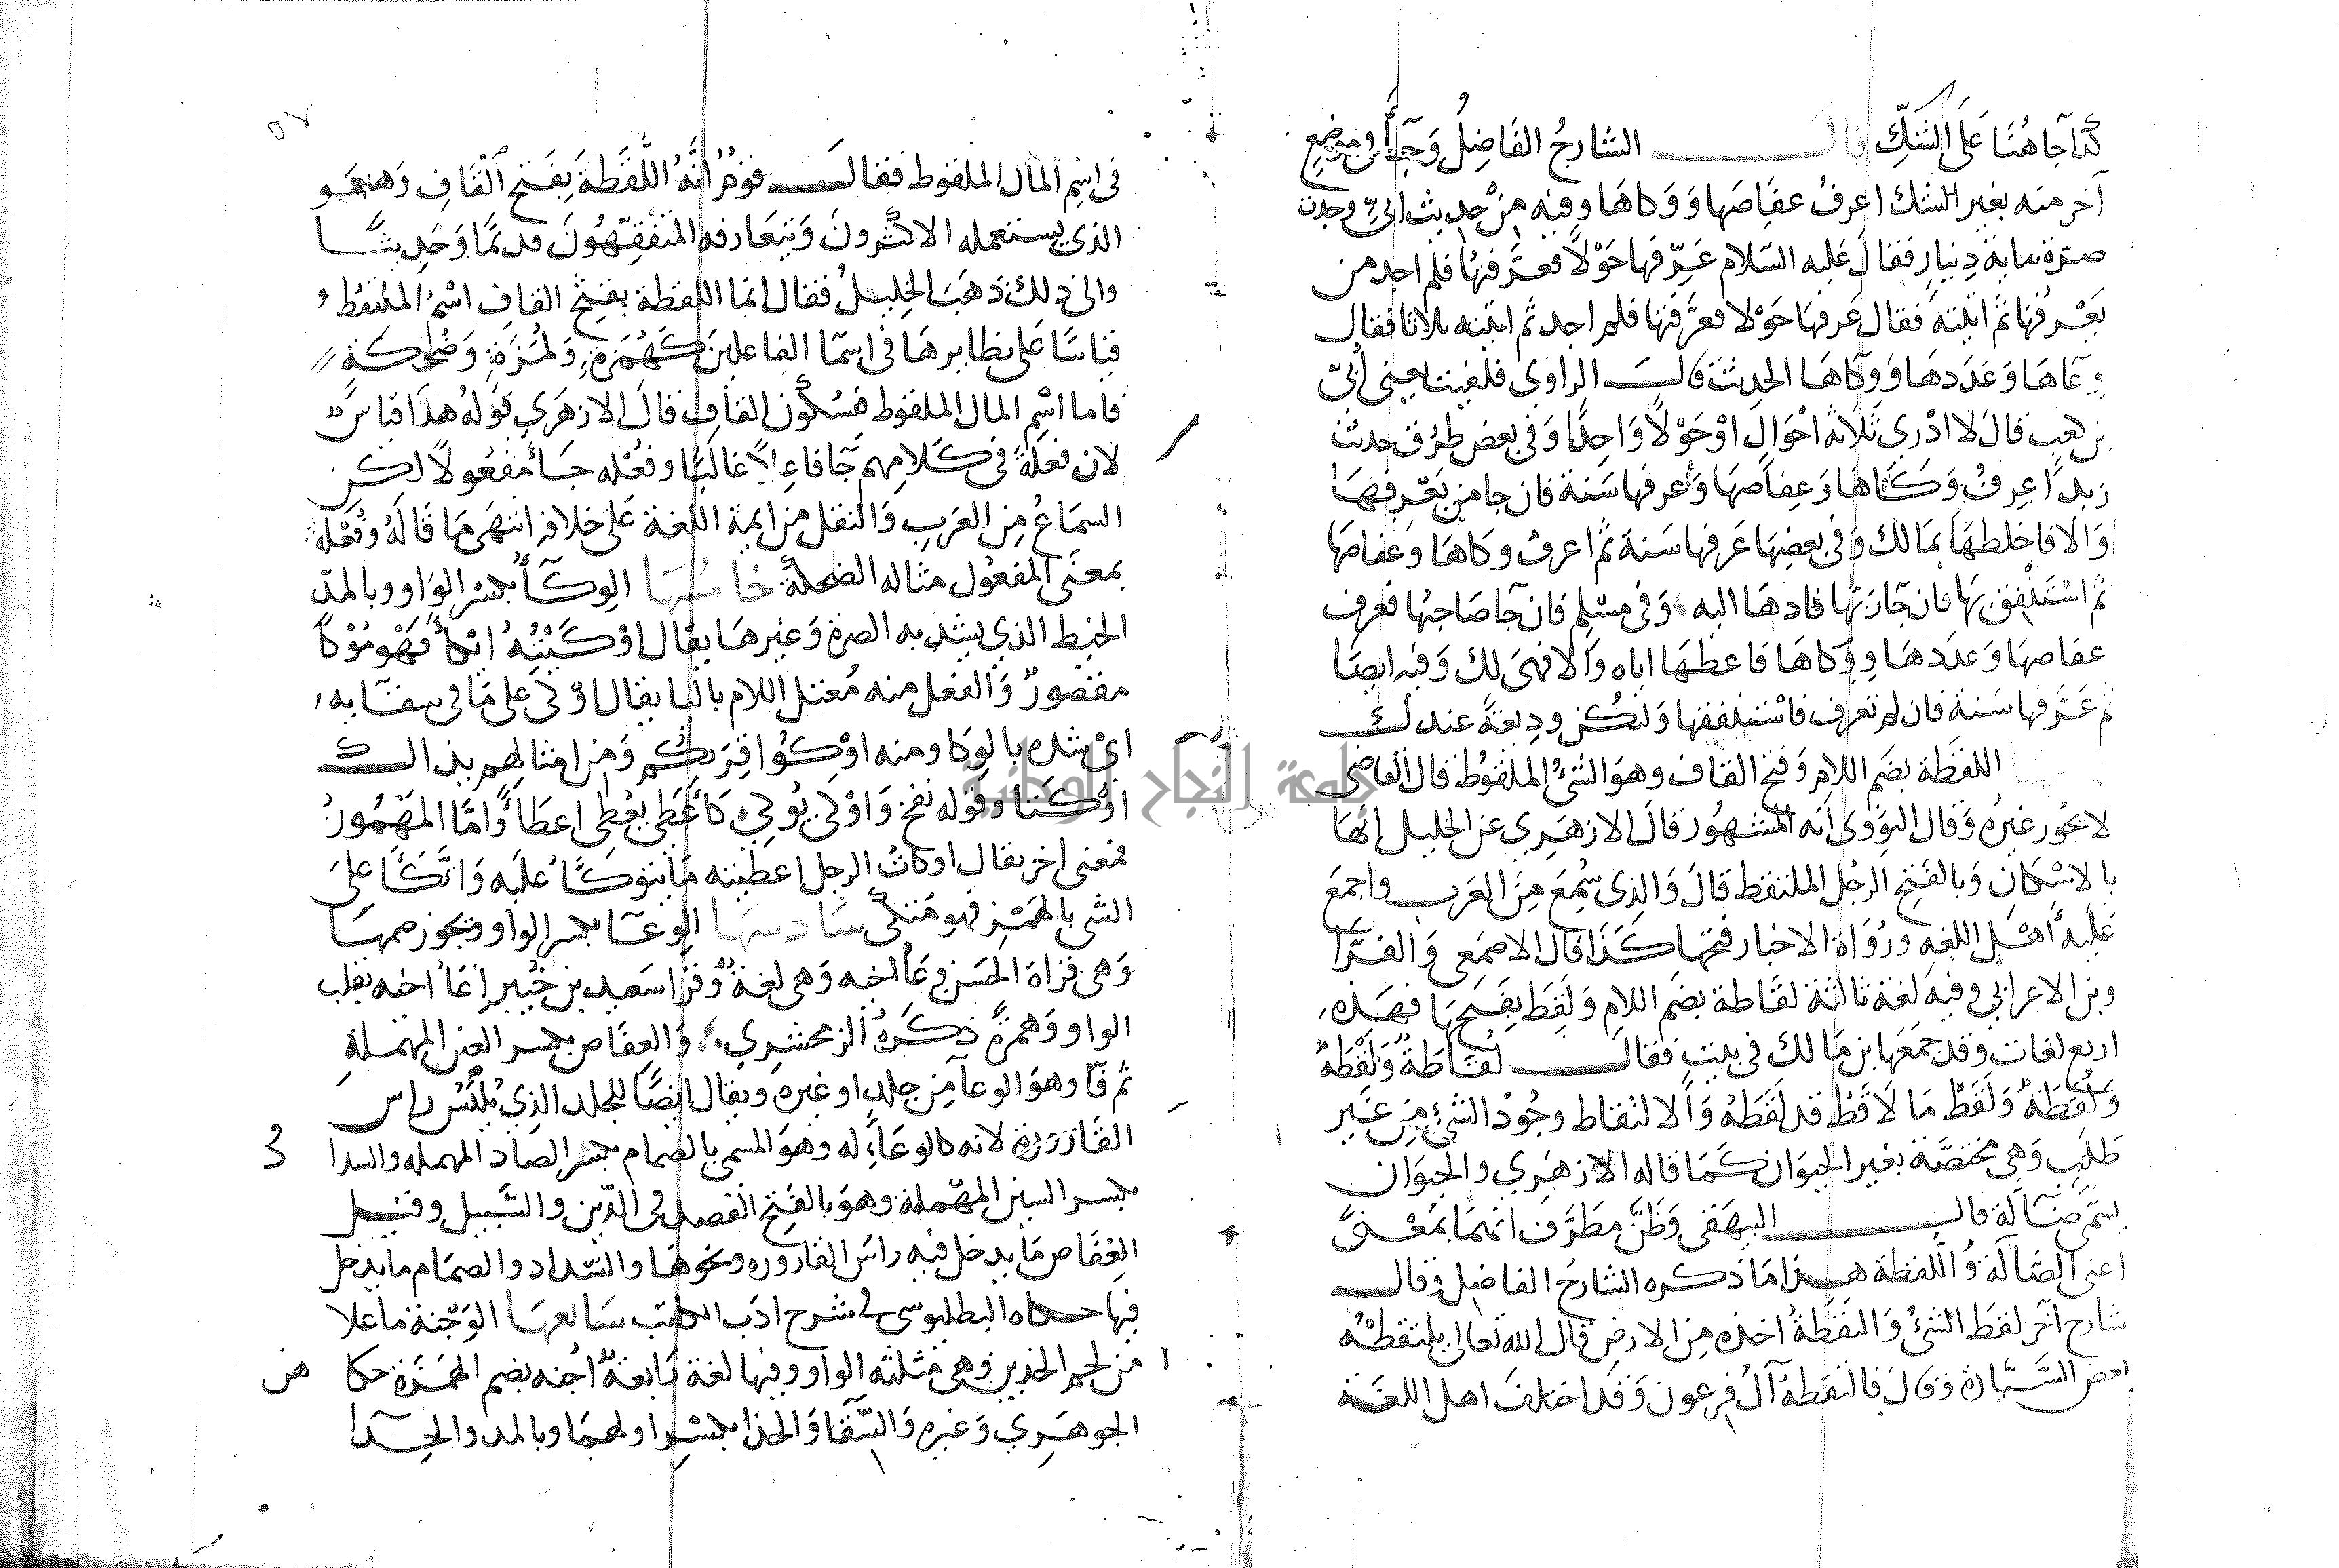 كذا جا هُنا عَلى الشَكِّ قالَ الشارحُ الفَاضِلُ وَجَآ في مَوضِعٍ
آخر منه بغير الشك اعرفُ عِفَاصها وَوكاها وفيه مِنْ حديث اُبيّ وجدت
صرّة مايةَ دِينارٍ فقالَ عليه السّلام عَرِّفها حَوْلاً فعَرَّفتُها فلم اجد من
يَعْرفُها ثمّ اتيته فقال عَرفها حَوْلا فعرَّفتها فلم اجد ثم اتيته ثلاثا فقال
وِعَاهَا وَعَدَدهَا وَوِكَاهَا الحديث قالَ الراوى فلقيت يعنى اُبىّ
بن كعب قال لا ادْرى ثَلاثة احْوال اوْ حَوْلاً وَاحِدًا وَفى بعض طرُق حديث
زيد اعِرفْ وكَاهَا وَعِفاصَهَا وَعرفها سَنة فان جا من يَعْرفهَا
وَالا فاخلطهَا بمَالك وَفى بعضِهَا عَرفها سَنة ثم اعرفْ وكاهَا وَعفاصَهَا
ثم اسْتَنْفِق بهَا فان جَآ رَبُّها فادهَا اليه وَفى مسْلِم فان جآ صَاحبُها فعرف
عفاصهَا وَعدَدهَا وِوكاهَا فاعطهَا اياه وَالا فهىَ لك وَفيه ايضًا
ثم عَرَّفها سَنة فان لم تعرف فاسْتنفقها وَلتكُن ودِيعَةً عندك
اللقطَة بضم اللام وَفتح القاف وهوَ الشئُ الملقوُط قال القاضى
لا يجُوز غيرُه وَقال النوَوى اَنه المشهُور قالَ الازهَرِى عن الخليل انها
بالاسْكان وَبالفتح الرجُل الملتقط قالَ وَالذى سُمِعَ مِنَ العَرب واجمعَ
عَليه أهْل اللغه ورُوَاة الاخبار فتحها كذا قال الاصمَعى وَالفرّا
وبن الاعرَابى وفيه لغة ثالثة لقَاطة بضم اللام وَلَقَط بِفَتحهَا فهَذه
اربع لغات وقد جمَعَها بن مَالك فى بيت فقال لُقَاطَةٌ وَلُقْطَةٌ
وَلُقَطَةٌ وَلَقَطٌ مَا لَاقِطٌ قد لَقَطَهُ وَالالتقاط وجُوْد الشئِ مِن غَير
طَلَبِ وَهى مختصَّة بغير الحيَوان كَمَا قاله الازهَرِى والحيَوان
يسَمّى ضَآلة قال البيهَقى وَظَنَّ مطرَّف انهمَا بمَعْنىً
اعنى الضّالَة وَاللقطة هذا مَا ذكره الشارحُ الفاضِل وَقال
شارح آخَر لقط الشئُ وَالتقطهُ اخذه مِن الارضِ قال الله تعالى يلتقطْهُ
بعض السَّيَّارة وقالَ فالتقطهُ آلُ فرعون وَقد اختلفَ اهل اللغَة
فى اسْمِ المال الملقوط فقالَ قومٌ انَّهُ اللُّقَطَةَ بفتح القَافِ وَهوَ
الذى يستعمله الاكثرونَ وَيتعَارفه المتفقّهُونَ قديمًا وَحَديثًا
والى ذلك ذهَبَ الخليلُ فقال انما اللقطة بفتح القافِ اسْمُ الملتقطُ
قياسًا عَلى نظايرهَا فى اسمَا الفاعلينَ كَهُمَزَةٍ وَلُمَزَةٍ وَضُحَكَةٍ
فاما اسْم المال الملقوط فبسُكُون القافِ قالَ الازهَرى قوْلهُ هذَا قياسٌ
لان فُعلةً فى كلامهِم جَآ فاعِلاً غالبًا وفعْله جَا مفعُولاً لكن
السمَاعُ مِن العَربِ وَالنقل من ايمة اللغة عَلى خلافه انتهَى مَا قالهُ وفُعْلة
بمعنَى المفعُول مثاله الضحكة خامسُهَا الوِكَآ بكسْر الوَاو وبالمدّ
الخيط الذى يشد به الصرة وَغيرهَا يقال اوْكَيْتُهُ ايْكَا فَهْوَ مُوْكًا
مقصورٌ وَالفعل منه مُعتل اللام باليا يقال اوْكى عَلى مَا فى سقايه
اىْ شده بالوِكا ومنه اوْكُوا قِرَبكُم وَمن امثالهِم يداك
اوْكتا وفوه نفخ وَاوْكى يُوكى كَاَعْطى يعْطى اعطَاءً وَامّا المهْمُوزُ
فمعنى اخر يقال اوكاتُ الرجل اعطيته مَا يتوَكَّأ عليه وَاتَّكَأ عَلى
الشى بالهمْزِ فهو متكئ سَادسهَا الوِعَا بكسر الواو وَيجُوز ضمهَا
وَهى قرَاة الحَسن وعَا اخيه وَهى لغة وَقرا سَعيد بن جُبير إِعَا اخيه بقلب
الواو وَهمزة ذكَرهُ الزمخشرِى وَالعِفَاص بكسر العين المهْملة
ثم فَآ وهوَ الوعآ مِن جلد او غيره ويقال ايضًا للجلد الذى يُلبَسُ راس
القارُورَةِ لانه كالوعَآءِ له وهوَ المسمى بالصِمَام بكسر الصَاد المهمله والسدا
بكسر السين المهمَلة وهوَ بالفتح القصد فى الدّين والسَّبيل وقيل
العِفَاص مَا يدخل فيه راسَ القاروره ونحوهَا والسّداد والصمَام ما يدخل
فيها حكاه البطليوسى فى شرح ادَب الكاتب سَابعهَا الوَجْنة ما عَلا
من لحم الخدين وَهى مثلثه الواو وفيها لغة رَابعَة اُجنه بضم الهمْزة حكا
الجوهَرِى وَغيره وَالسِّقا وَالحذا بكسْر اولهمَا وبالمد والحِذا